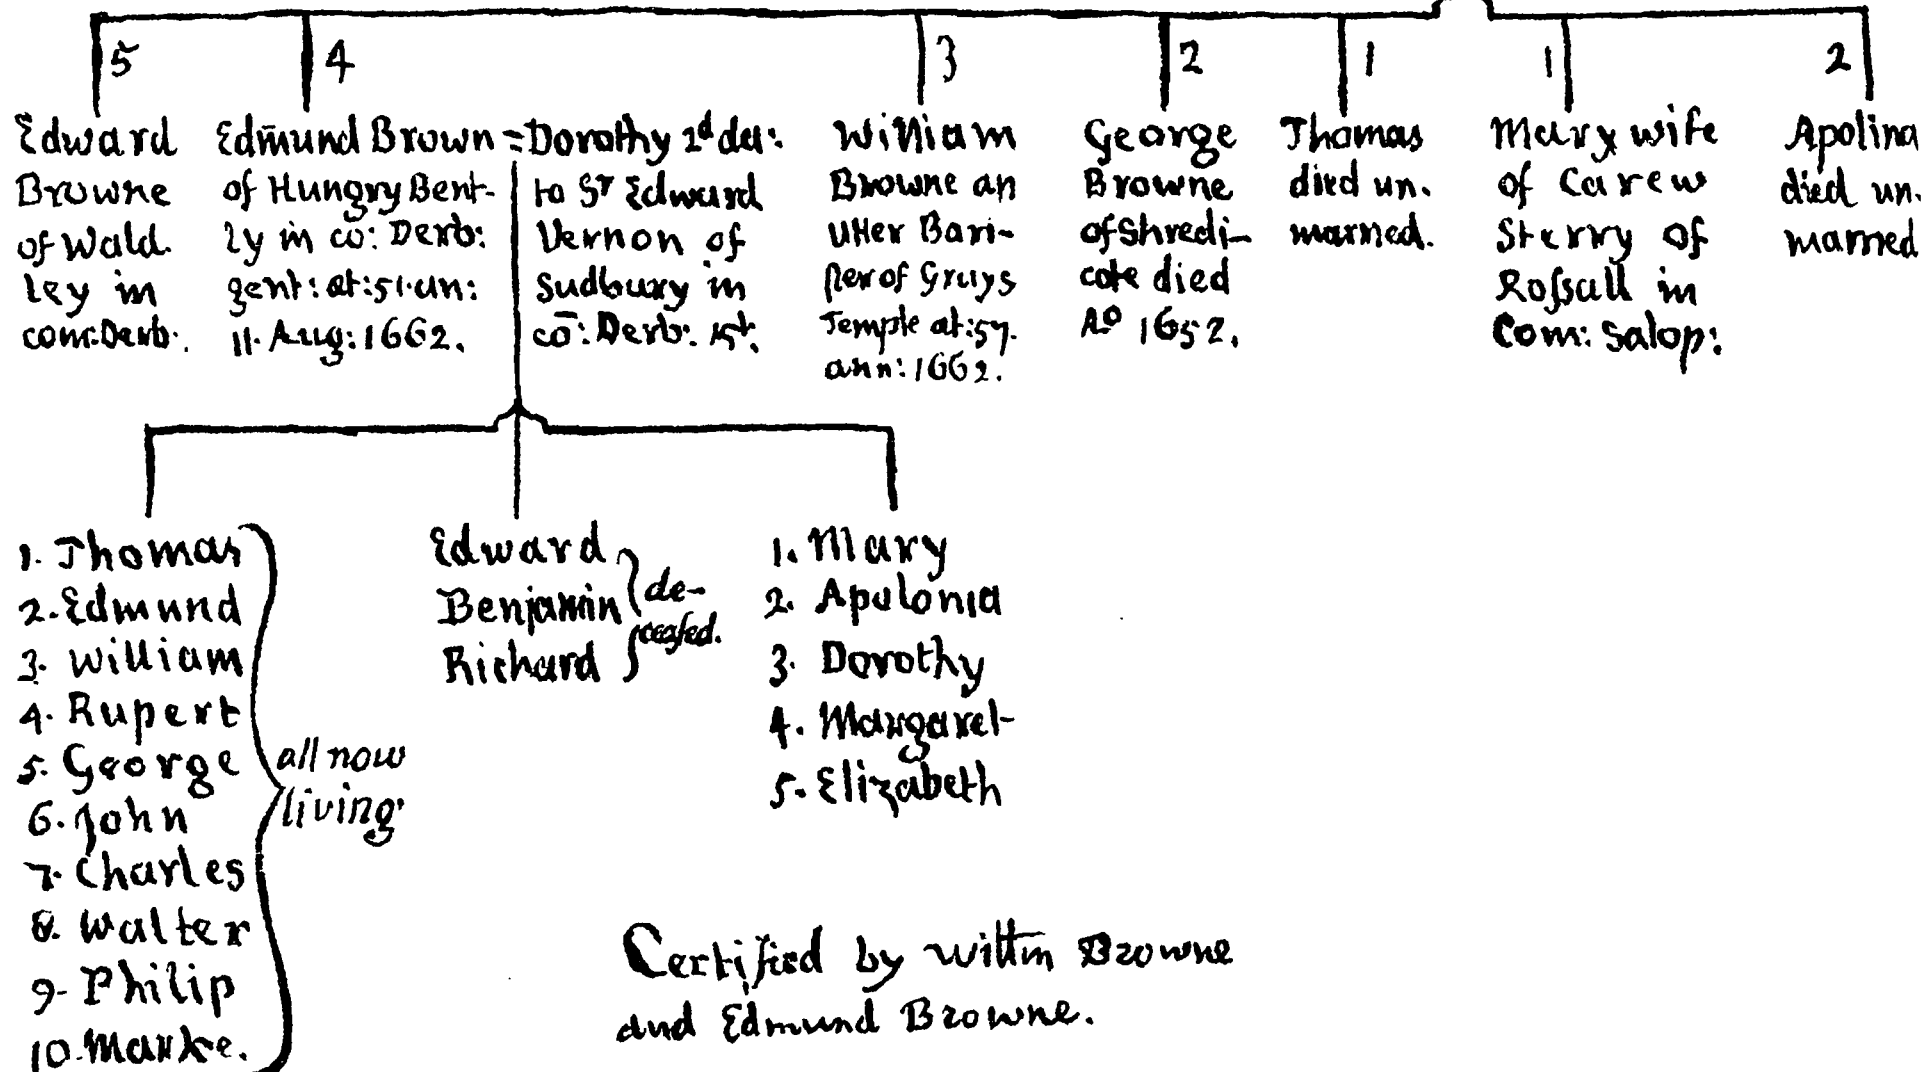 5
Edward
Browne
of Wald
ley in
com:Derb:
4
Edmund Brown =
of Hungry Bent-
ly in co: Derb:
gent: æt: 51. an:
11. Aug: 1662.
Dorothy 2d da:
to Sr Edward
Vernon of
Sudbury in
cō: Derb:
3
William
Browne an
utter Bari-
ster of Grays
Temple at: 57.
ann: 1662.
2
George
Browne
of Shredi-
cote died
Ao 1652.
1
Thomas
died un.
married.
1
Mary wife
of Carew
Sterry of
Roſsall in
Com: Salop:
2
Apolina
died un.
married
1. Thomas
2. Edmund
3. William
4. Rupert
5. George
6. John
7. Charles
8. Walter
9. Philip
10. Marke.
all now
living
Edward
Benjamin
Richard
de-
ceaſed.
1. Mary
2. Apolonia
3. Dorothy
4. Margaret
5. Elizabeth
Certified by Willm Browne
and Edmund Browne.